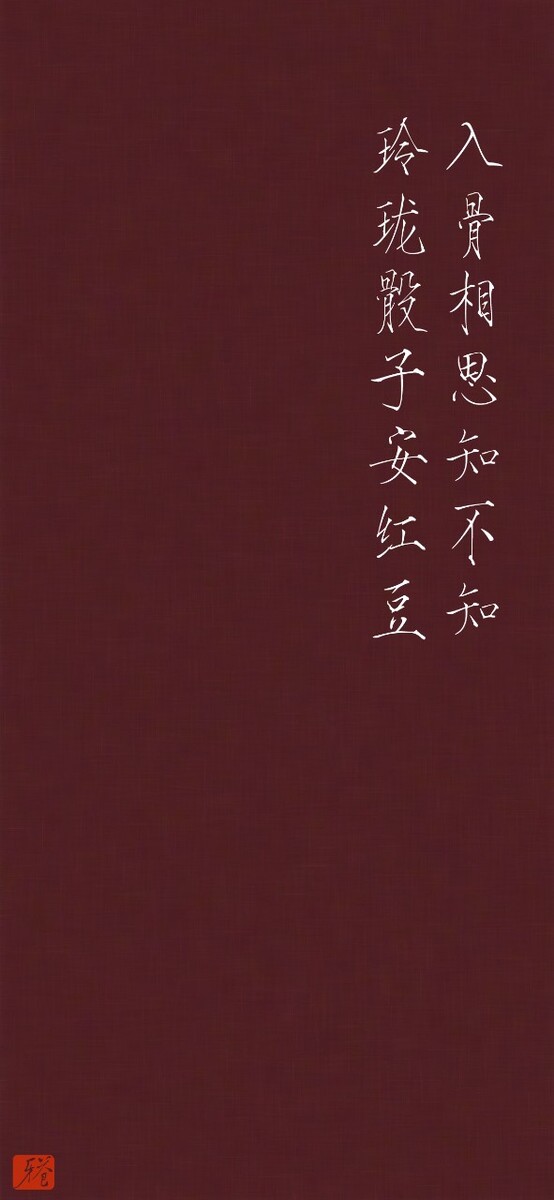 入骨相思知不知
玲珑骰子安红豆